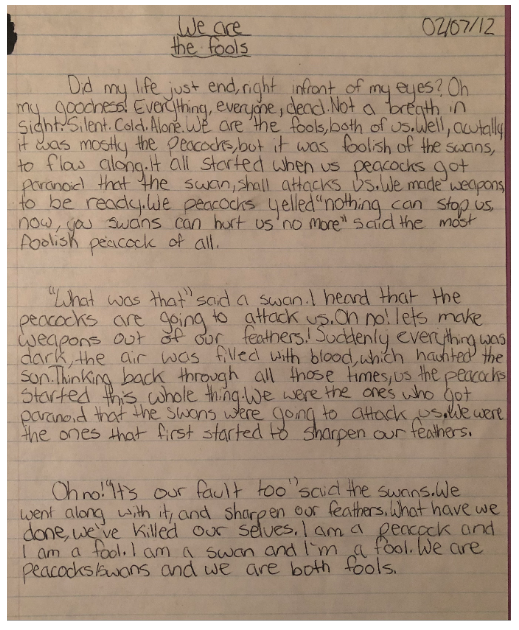 We are
the fools
02/07/12
Did my life just end,right infront of my eyes? Oh
my goodness! Everything, everyone, dead.Not a breath in
sight.Silent.Cold.Alone.We are the fools,both of us.Well, acutally
it was mostly the Peacocks,but it was foolish of the swans,
to flow along.It all started when us peacocks got
paranoid that the swan,shall attacks us.We made weapons
to be ready.We peacocks yelled "nothing can stop us,
now, you swans can hurt us no more" said the most
foolish peacock of all.
"What was that" said a swan.I heard that the
peacocks are going to attack us.Oh no! lets make
weapons out of our feathers! Suddenly everything was
dark,the air was filled with blood,which haunted the
sun.Thinking back through all those times,us the peacocks
started this whole thing.We were the ones who got
paranoid that the swans were going to attack us.We were
the ones that first started to sharpen our feathers.
Oh no! "It's our fault too" said the swans.We
went along with it, and sharpen our feathers.What have we
done, we've killed our selves.I am a peacock and
I am a fool.I am a swan and I'm a fool.We are
peacocks/swans and we are both fools.